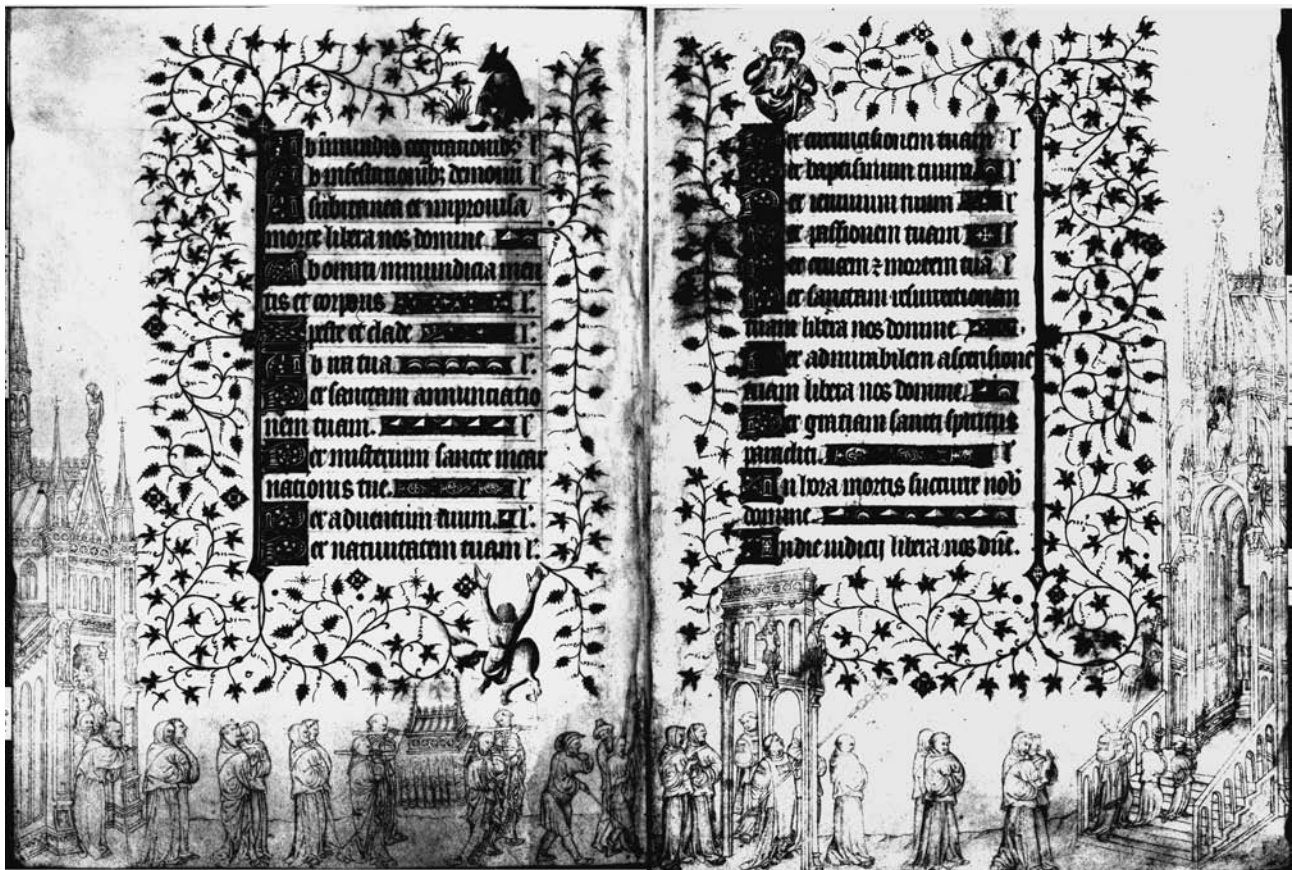 Ab inmundis cogitationib; l'
Ab infestationib; demonū l'.
A subitanea et improuisa
morte libera nos domine.
Ab omni inmundicia men
tis et corporis l'.
A peste et clade l'.
Ab ira tua l'.
Per sanctam annunciatio
nem tuam. l'
Per misterium sancte incar
nationis tue. l'
Per aduentum tuum. l'.
Per natiuitatem tuam l'.
Per circuncisionem tuam l'
Per baptismum tuum l'
Per ieiunium tuum l'
Per passionem tuam l'
Per crucem ⁊ mortem tuā l'
Per sanctam resurrectionem
tuam libera nos domine.
Per admirabilem ascensionē
tuam libera nos domine.
Per gratiam sancti spiritus
paracliti. l'
In hora mortis succurre nob'
domine.
In die iudicij libera nos dn̄e.